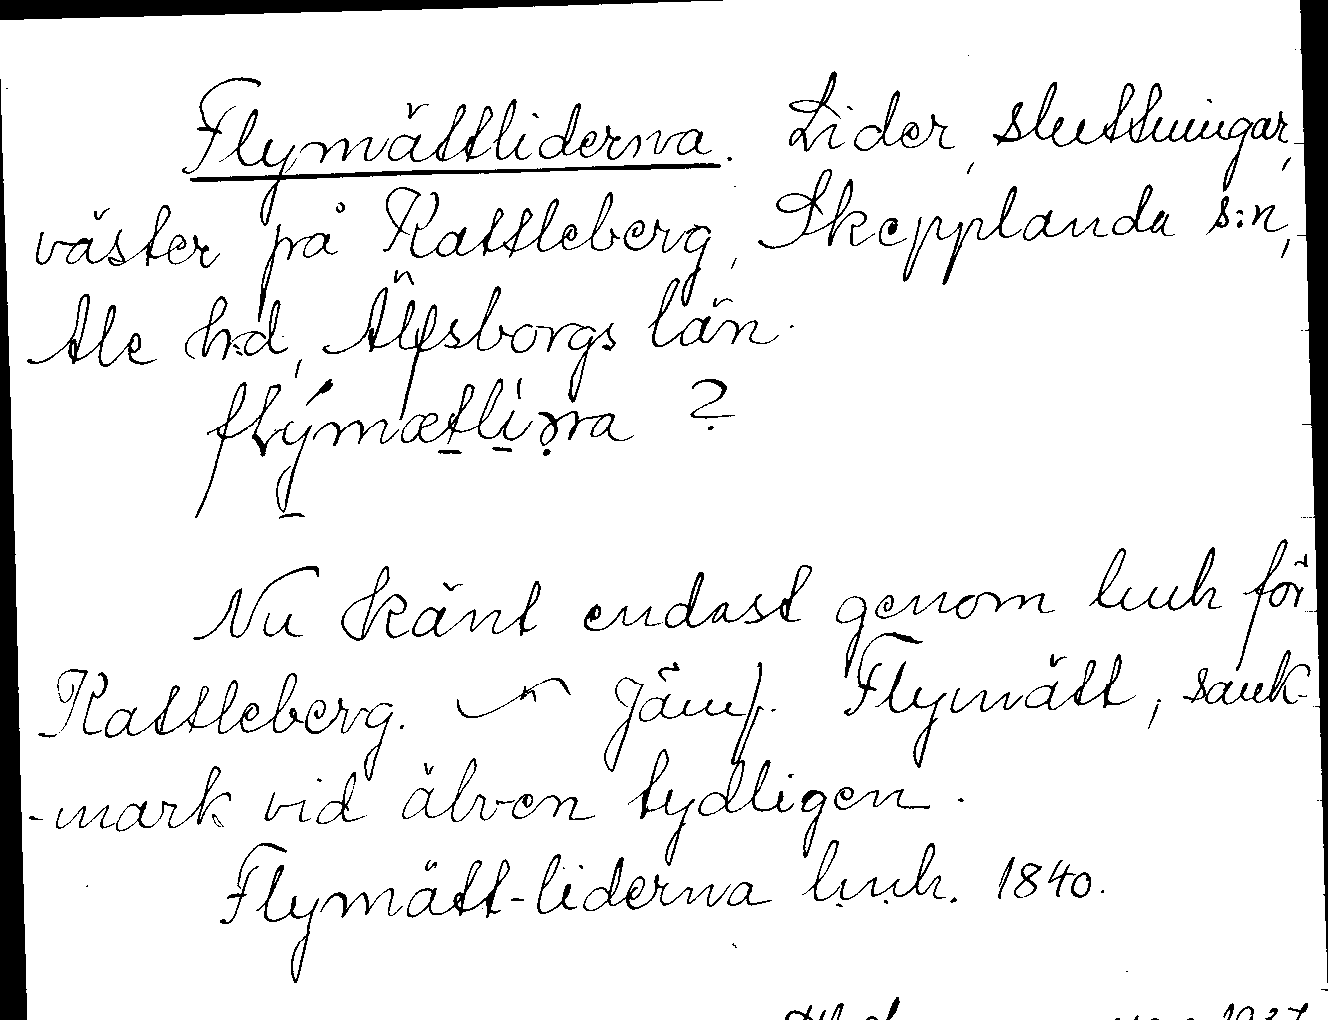 Flymättliderna. Lider, sluttningar,
väster på Kattleberg, Skepplanda s:n,
Ale hd, Älfsborgs län.
flýmætlịṇa ?
Nu känt endast genom lmk för
Kattleberg. Jämf. Flymätt, sank-
-mark vid älven tydligen.
Flymätt-liderna lmk. 1840.